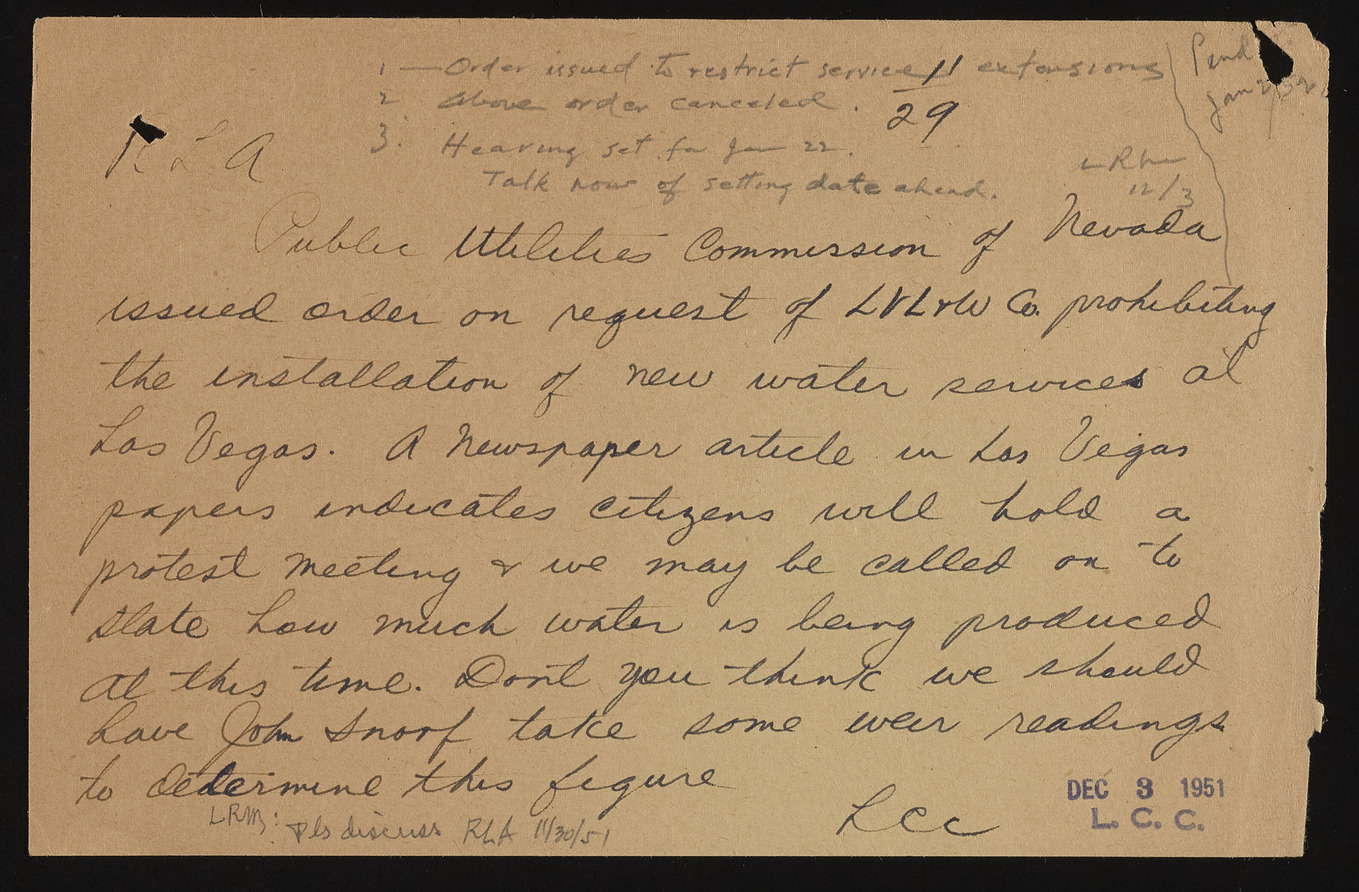 1 — Order issued to restrict service extensions
2 Above order canceled.
3. Hearing set for Jan 22.
Talk now of setting date ahead.
11
29
Pend
Jan
LRM
12/3
RLA
Public Utilities Commission of Nevada
issued order on request of LVL&W Co. prohibiting
the installation of new water services at
Las Vegas. A newspaper article in Las Vegas
papers indicates citizens will hold a
protest meeting & we may be called on to
state how much water is being produced
at this time. Dont you think we should
have John Snoof take some weir readings
to determine this figure
LCC
LRM: Pls discuss RLA 11/30/51
DEC 3 1951
L. C. C.